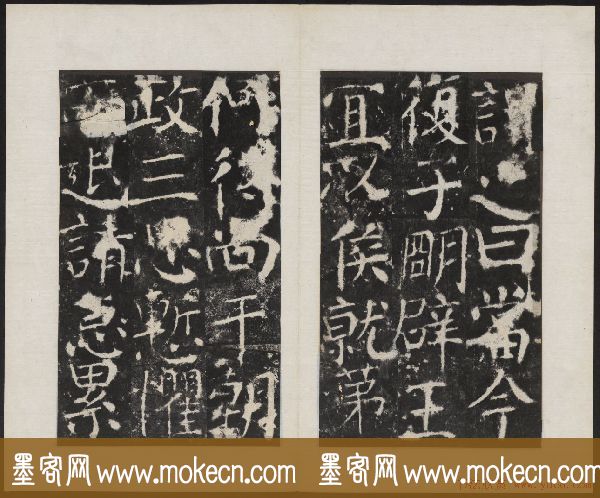 之曰當今
復子明辟王
宜以侯就第
何得尚干朝
政三思慙懼
退請急累
墨客网 www.mokecn.com 墨客网 www.mokecn.com